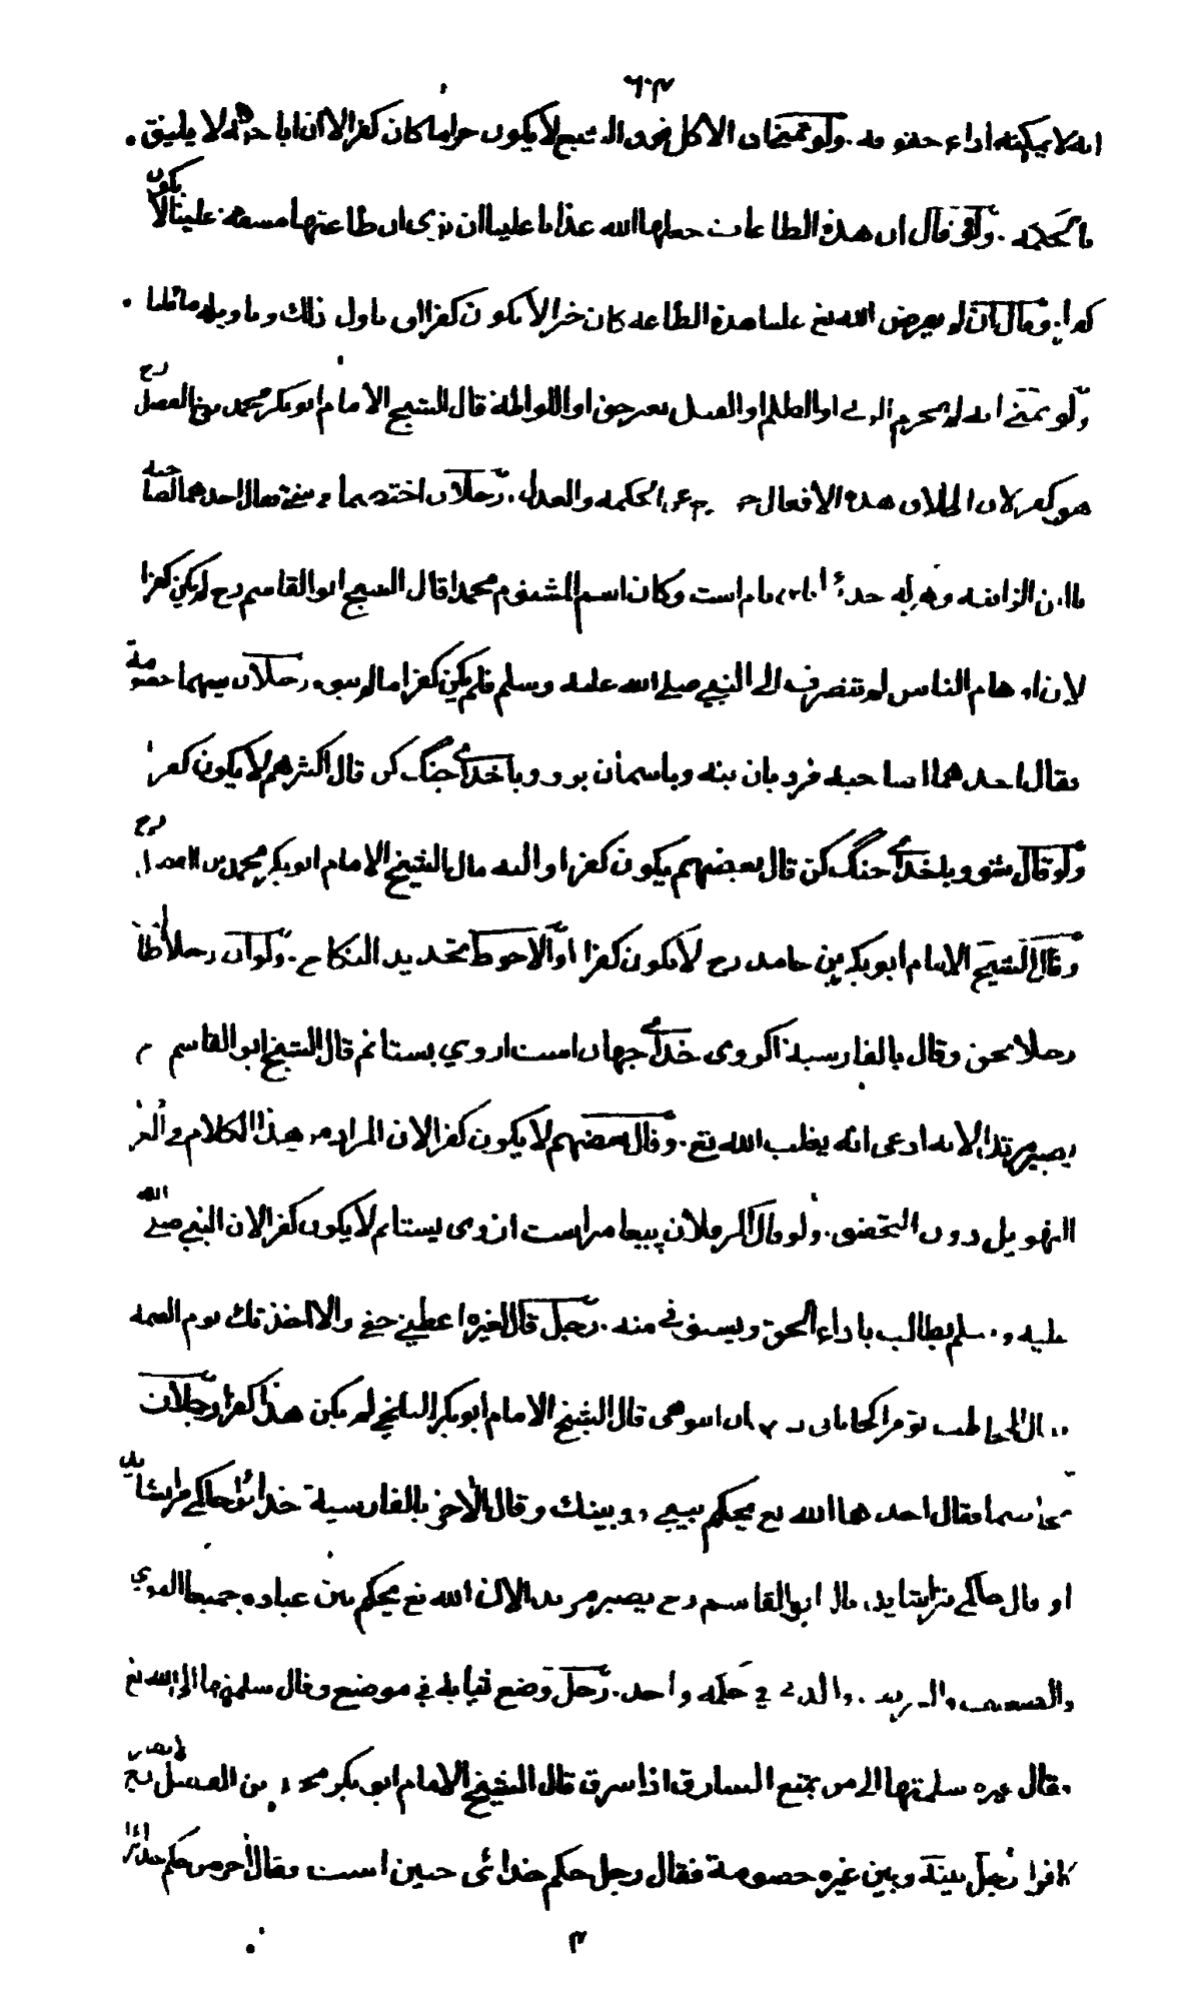 ٦٠٣
انه لا يمكنه اداء حقوقه . ولو تمنى ان الاكل فوق الشبع لا يكون حراما كان كفرا لان اباحته لا يليق .
بالحكمة . ولو قال ان هذه الطاعات جعلها الله عذابا علينا ان نرى ان طاعتها مسقة علينا لا يكون
كفرا . وقال ان لم يفرض الله تع علينا هذه الطاعة كان خيرا لا يكون كفرا ان ياول ذلك وتاويله ما قلنا .
ولو تمنى انه لم يحرم الزنى او الظلم او القتل بغير حق او اللواطة قال الشيخ الامام ابو بكر محمد بن الفضل رح
هو كفر لان اطلاق هذه الافعال خروج عن الحكمة والعدل . رجلان اختصما في شئ فقال احدهما لصاحبه
يا ابن الزانية وهر كه خدا نام است وكان اسم المشتوم محمدا قال الشيخ ابو القاسم رح لم يكن كفرا
لان اوهام الناس لم تنصرف الى النبي صلى الله عليه وسلم فلم يكن كفرا ما لم ينوه . رجلان بينهما خصومة
فقال احدهما لصاحبه نردبان بنه وباسمان برو وبا خداى جنگ كن قال اكثرهم لا يكون كفرا
ولو قال شو وبا خداى جنگ كن قال بعضهم يكون كفرا واليه مال الشيخ الامام ابو بكر محمد بن الفضل رح
وقال الشيخ الامام ابو بكر بن حامد رح لا يكون كفرا والاحوط تجديد النكاح . ولو ان رجلا طالب
رجلا بحق وقال بالفارسية اكر وى خداى جهان است از وي بستانم قال الشيخ ابو القاسم
يصير مرتدا لانه ادعى انه يغلب الله تع . وقال بعضهم لا يكون كفرا لان المراد من هذا الكلام في العرف
التهويل دون التحقيق . ولو قال اكر فلان پيغامبر است از وى بستانم لا يكون كفرا لان النبي صلى الله
عليه وسلم يطالب باداء الحق ويستوفى منه . رجل قال لغيره اعطني حقي والا اخذتك يوم القيمة
قال الشيخ الامام ابو بكر البلخي لم يكن هذا كفرا ورجلان
تخاصما فقال احدهما الله تع يحكم بيني وبينك وقال الاخر بالفارسية خداى حاكمى مرا نشايد
او قال حاكمى ترا نشايد قال ابو القاسم رح يصير مرتدا لان الله تع يحكم بين عباده جميعا القوي
والضعيف في حكمه واحد . رجل وضع ثيابه في موضع وقال سلمتها الى الله تع
فقال غيره سلمتها الى من يمنع السارق اذا سرق قال الشيخ الامام ابو بكر محمد بن الفضل رح لا يصير
كافرا رجل بينه وبين غيره خصومة فقال رجل حكم خدائى چنين است فقال اخر من حكم خدا را